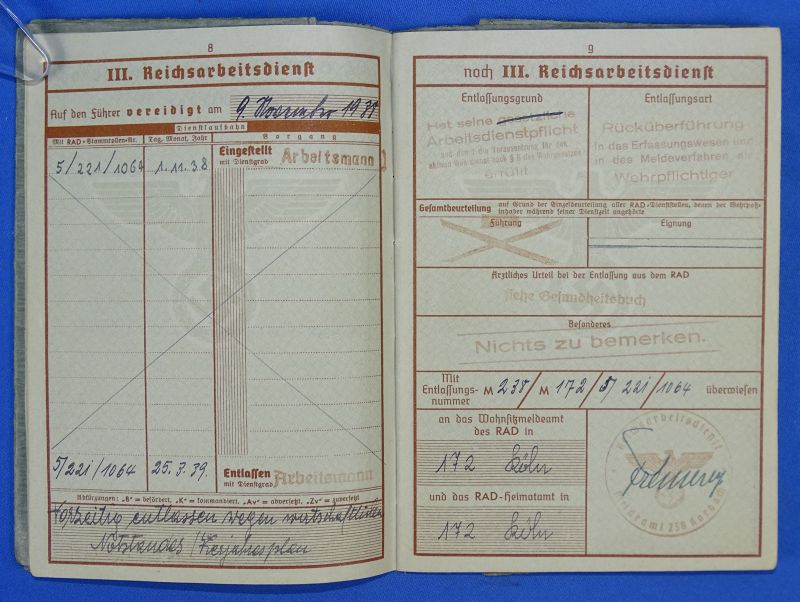 8
III. Reichsarbeitsdienst
Auf den Führer vereidigt am 9. November 1938
Dienstlaufbahn
Mit RAD-Stammrollen-Nr. Tag, Monat, Jahr Vorgang
5/221/1064 1.11.38 Eingestellt mit Dienstgrad Arbeitsmann
5/221/1064 25.3.39. Entlassen mit Dienstgrad Arbeitsmann
Abkürzungen: „B“ = befördert, „K“ = kommandiert, „Av“ = abversetzt, „Zv“ = zuversetzt
Vorzeitig entlassen wegen wirtschaftlichen
Notstandes / Vierjahresplan
9
noch III. Reichsarbeitsdienst
Entlassungsgrund
Hat seine gesetzliche
Arbeitsdienstpflicht
erfüllt
Entlassungsart
Rücküberführung
in das Erfassungswesen und
in das Meldeverfahren als
Wehrpflichtiger
Gesamtbeurteilung auf Grund der Einzelbeurteilung aller RAD-Dienststellen, denen der Wehrpaß-
inhaber während seiner Dienstzeit angehörte
Führung Eignung
Ärztliches Urteil bei der Entlassung aus dem RAD
siehe Gesundheitsbuch
Besonderes
Nichts zu bemerken.
Mit Entlassungs-
nummer M 238/ M 172/5/ 221/1064 überwiesen
an das Wohnsitzmeldeamt
des RAD in
172 Köln
und das RAD-Heimatamt in
172 Köln